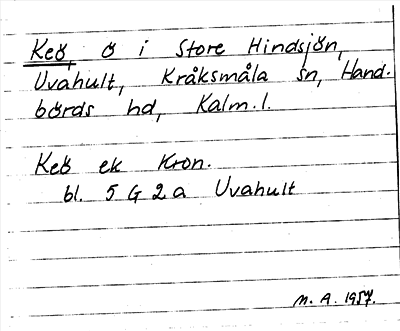 Keö, ö i Store Hindsjön,
Uvahult, Kråksmåla sn, Hand-
börds hd, Kalm.l.
Keö ek Kron.
bl. 5 G 2 a Uvahult
M.A. 1957.